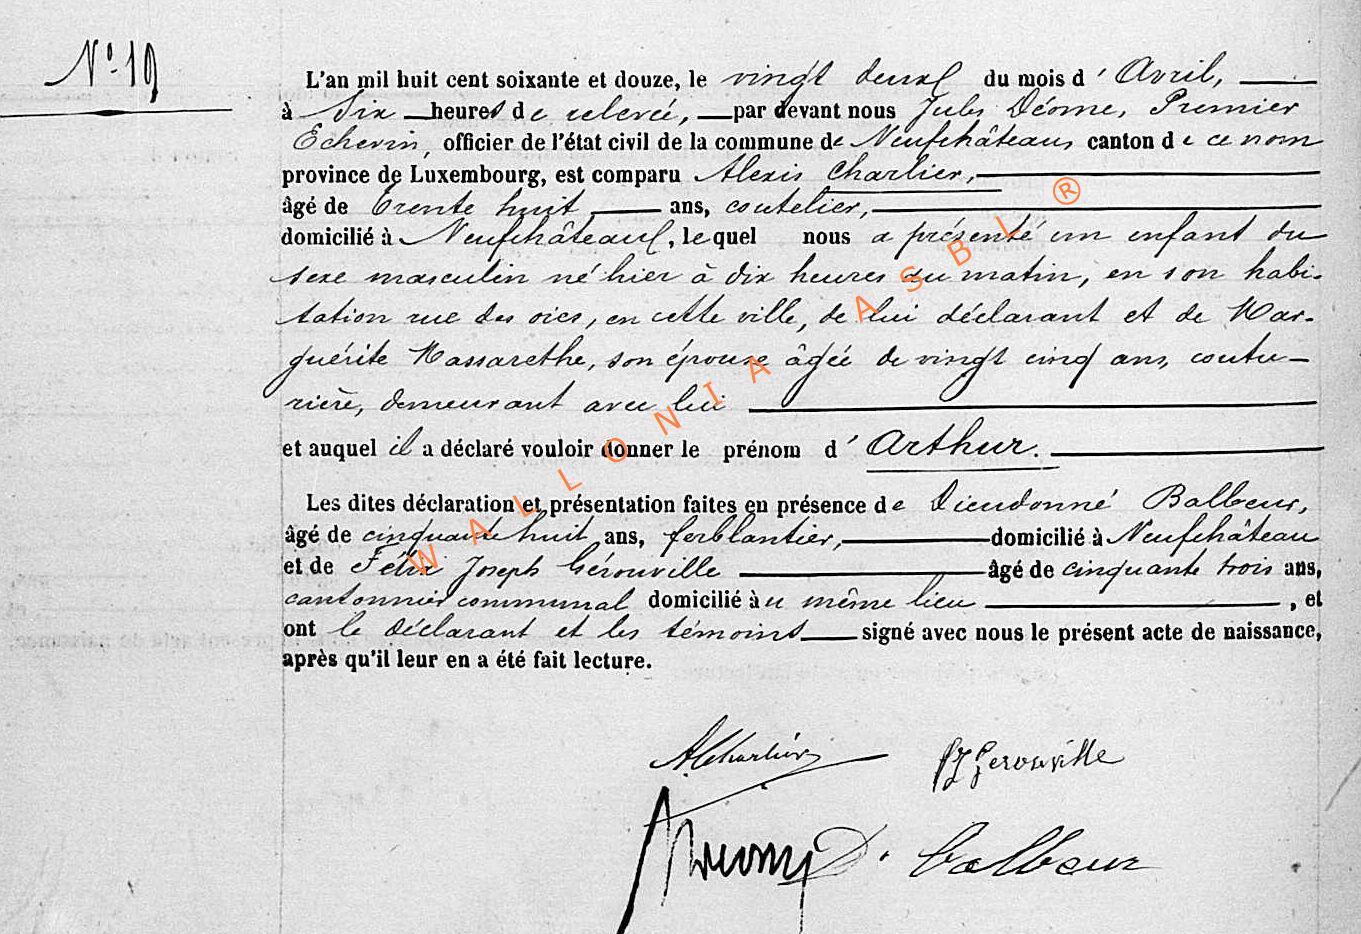 N° 19
L'an mil huit cent soixante et douze, le vingt deux du mois d'Avril,
à Six heures de relevée, par devant nous Jules Déome, Premier
Echevin, officier de l'état civil de la commune de Neufchâteau, canton de ce nom
province de Luxembourg, est comparu Alexis Charlier,
âgé de trente huit ans, coutelier,
domicilié à Neufchâteau, lequel nous a présenté un enfant du
sexe masculin né hier à dix heures du matin, en son habi-
tation rue des oies, en cette ville, de lui déclarant et de Mar-
guérite Massarethe, son épouse âgée de vingt cinq ans, coutu-
rière, demeurant avec lui
et auquel il a déclaré vouloir donner le prénom d'Arthur.
Les dites déclaration et présentation faites en présence de Dieudonné Balbeur,
âgé de cinquante huit ans, ferblantier, domicilié à Neufchâteau
et de Félix Joseph Gérouville âgé de cinquante trois ans,
cantonnier communal domicilié au même lieu, et
ont le déclarant et les témoins signé avec nous le présent acte de naissance,
après qu'il leur en a été fait lecture.
A Charlier
FJ Gerouville
D. Balbeur
WALLONIA ASBL ®